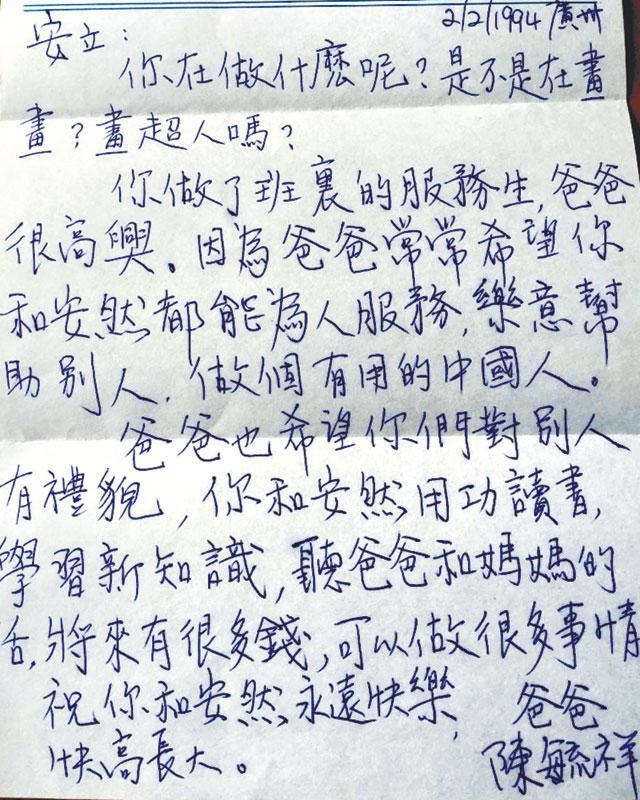 2/2/1994 廣州
安立：
你在做什麼呢？是不是在畫
畫？畫超人嗎？
你做了班裏的服務生，爸爸
很高興。因為爸爸常常希望你
和安然都能為人服務，樂意幫
助別人，做個有用的中國人。
爸爸也希望你們對別人
有禮貌，你和安然用功讀書，
學習新知識，聽爸爸和媽媽的
話，將來有很多錢，可以做很多事情
祝你和安然永遠快樂，爸爸
快高長大。陳毓祥